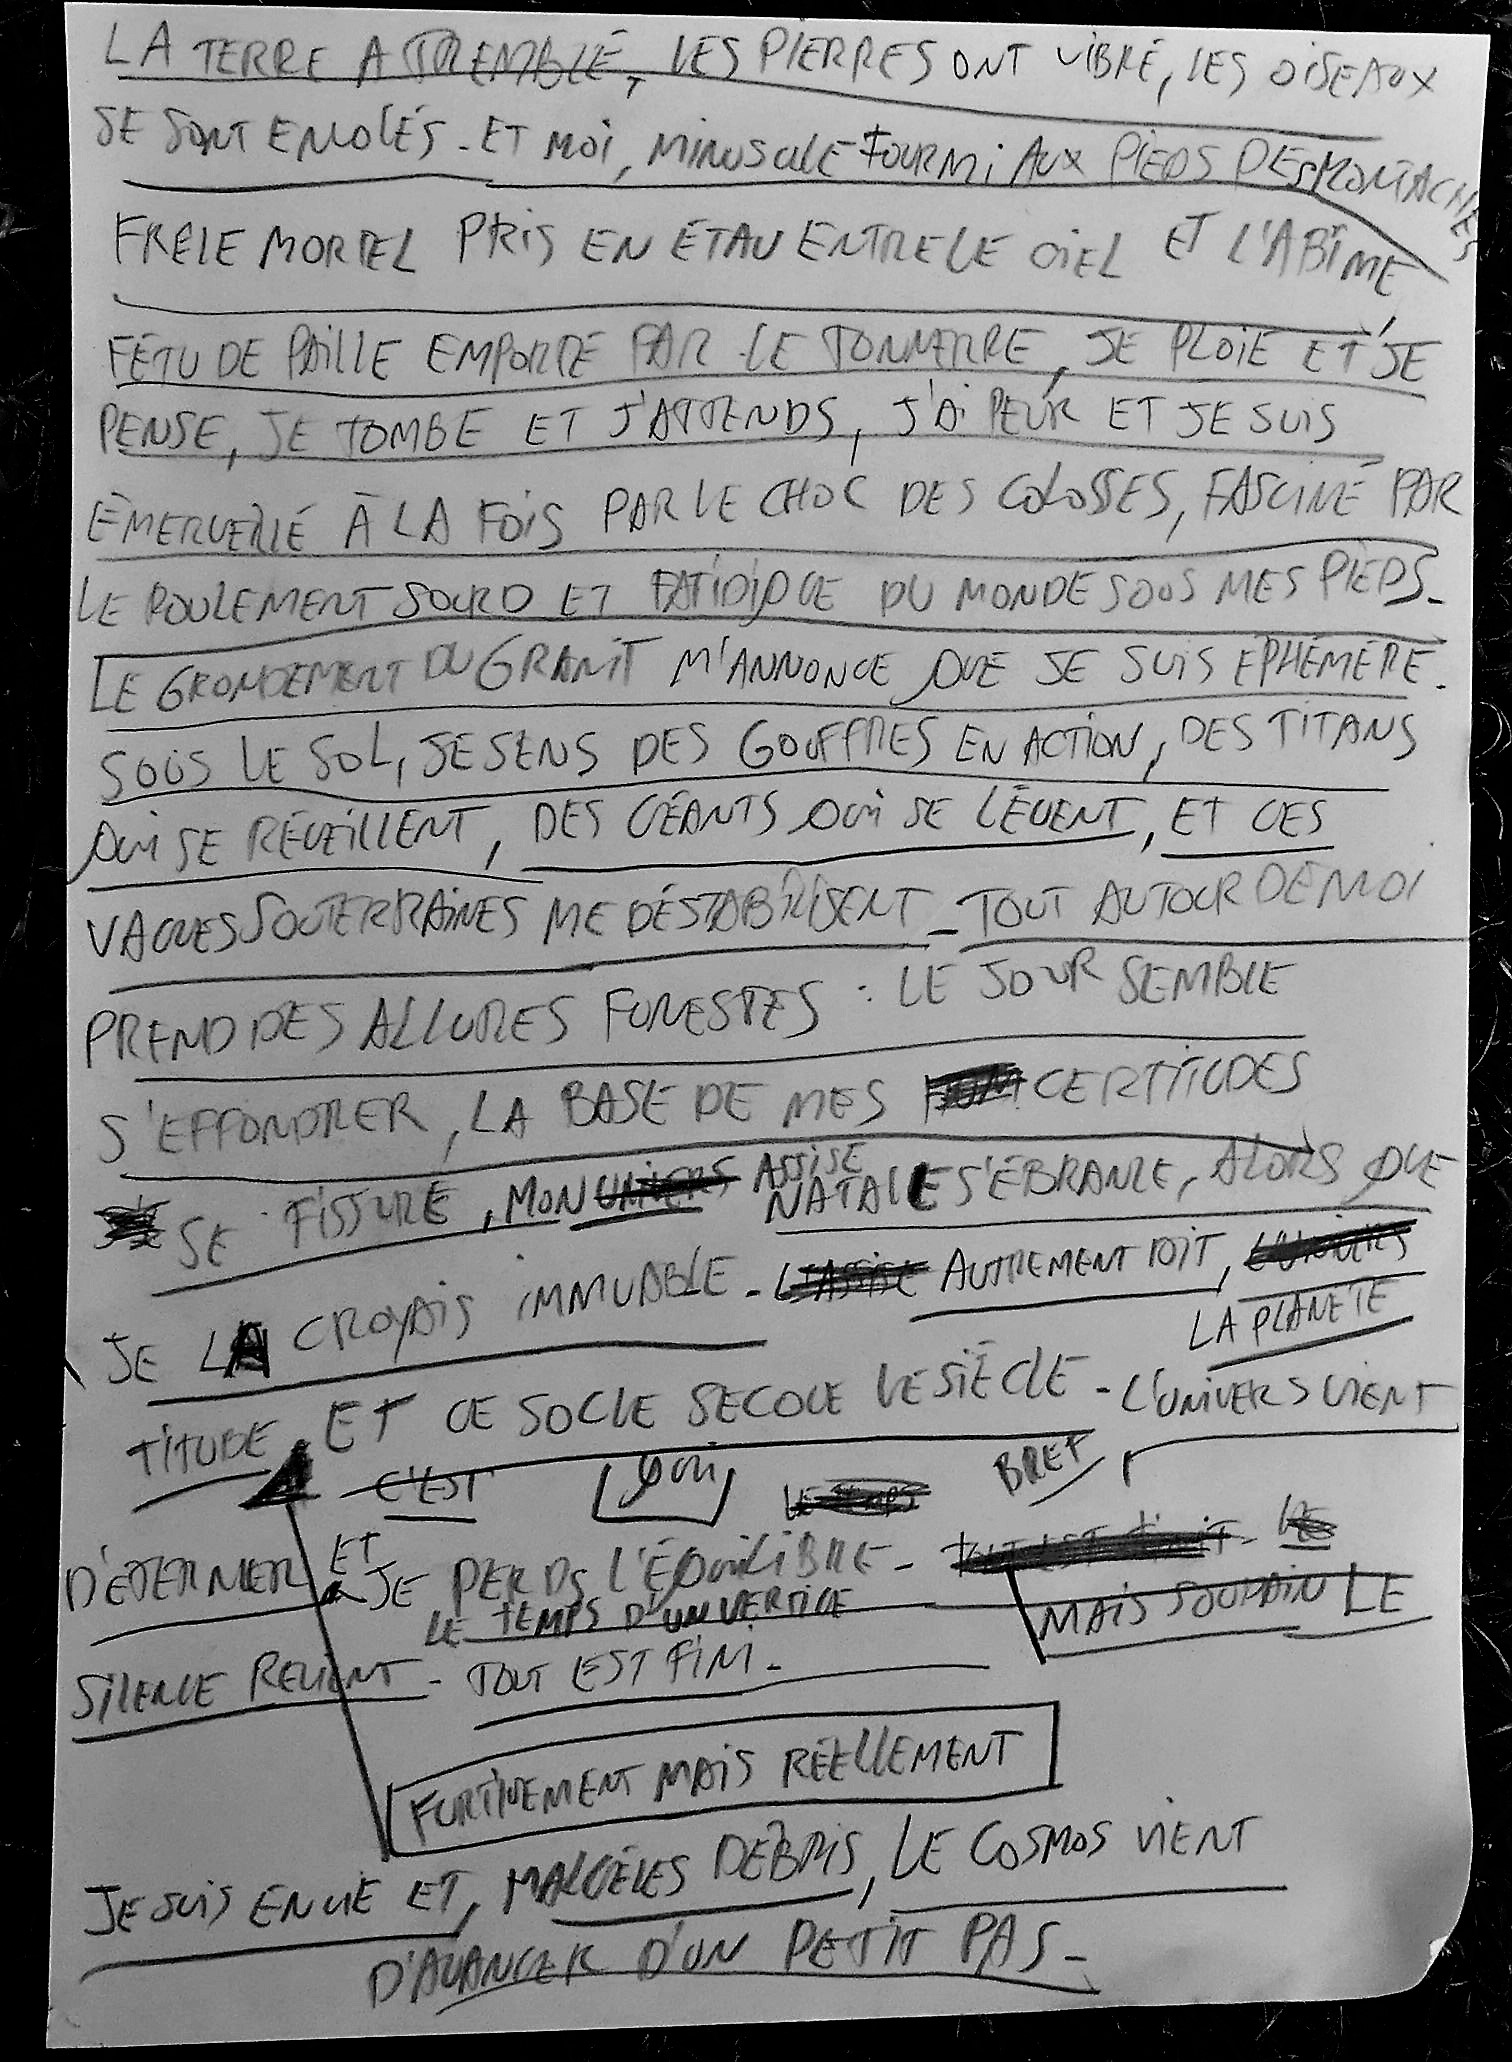 LA TERRE A TREMBLÉ, LES PIERRES ONT VIBRÉ, LES OISEAUX
SE SONT ENVOLÉS. ET MOI, MINUSCULE FOURMI AUX PIEDS DES MONTAGNES
FRÊLE MORTEL PRIS EN ÉTAU ENTRE LE CIEL ET L'ABÎME,
FÉTU DE PAILLE EMPORTÉ PAR LE TONNERRE, JE PLOIE ET JE
PENSE, JE TOMBE ET J'ATTENDS, J'AI PEUR ET JE SUIS
ÉMERVEILLÉ À LA FOIS PAR LE CHOC DES COLOSSES, FASCINÉ PAR
LE ROULEMENT SOURD ET FATIDIQUE DU MONDE SOUS MES PIEDS.
LE GRONDEMENT DU GRANIT M'ANNONCE QUE JE SUIS ÉPHÉMÈRE.
SOUS LE SOL, JE SENS DES GOUFFRES EN ACTION, DES TITANS
QUI SE RÉVEILLENT, DES GÉANTS QUI SE LÈVENT, ET CES
VAGUES SOUTERRAINES ME DÉSTABILISENT. TOUT AUTOUR DE MOI
PREND DES ALLURES FUNESTES : LE JOUR SEMBLE
S'EFFONDRER, LA BASE DE MES CERTITUDES
SE FISSURE, MON ASSISE
NATALE S'ÉBRANLE, ALORS QUE
JE LA CROYAIS IMMUABLE. AUTREMENT DIT,
LA PLANÈTE
TITUBE ET CE SOCLE SECOUE LE SIÈCLE. L'UNIVERS VIENT
C'EST QUI BREF
D'ÉTERNUER ET JE PERDS L'ÉQUILIBRE.
LE TEMPS D'UN VERTIGE
MAIS SOUDAIN LE
SILENCE REVIENT. TOUT EST FINI.
FURTIVEMENT MAIS RÉELLEMENT
JE SUIS EN VIE ET, MALGRÉ LES DÉBRIS, LE COSMOS VIENT
D'AVANCER D'UN PETIT PAS.